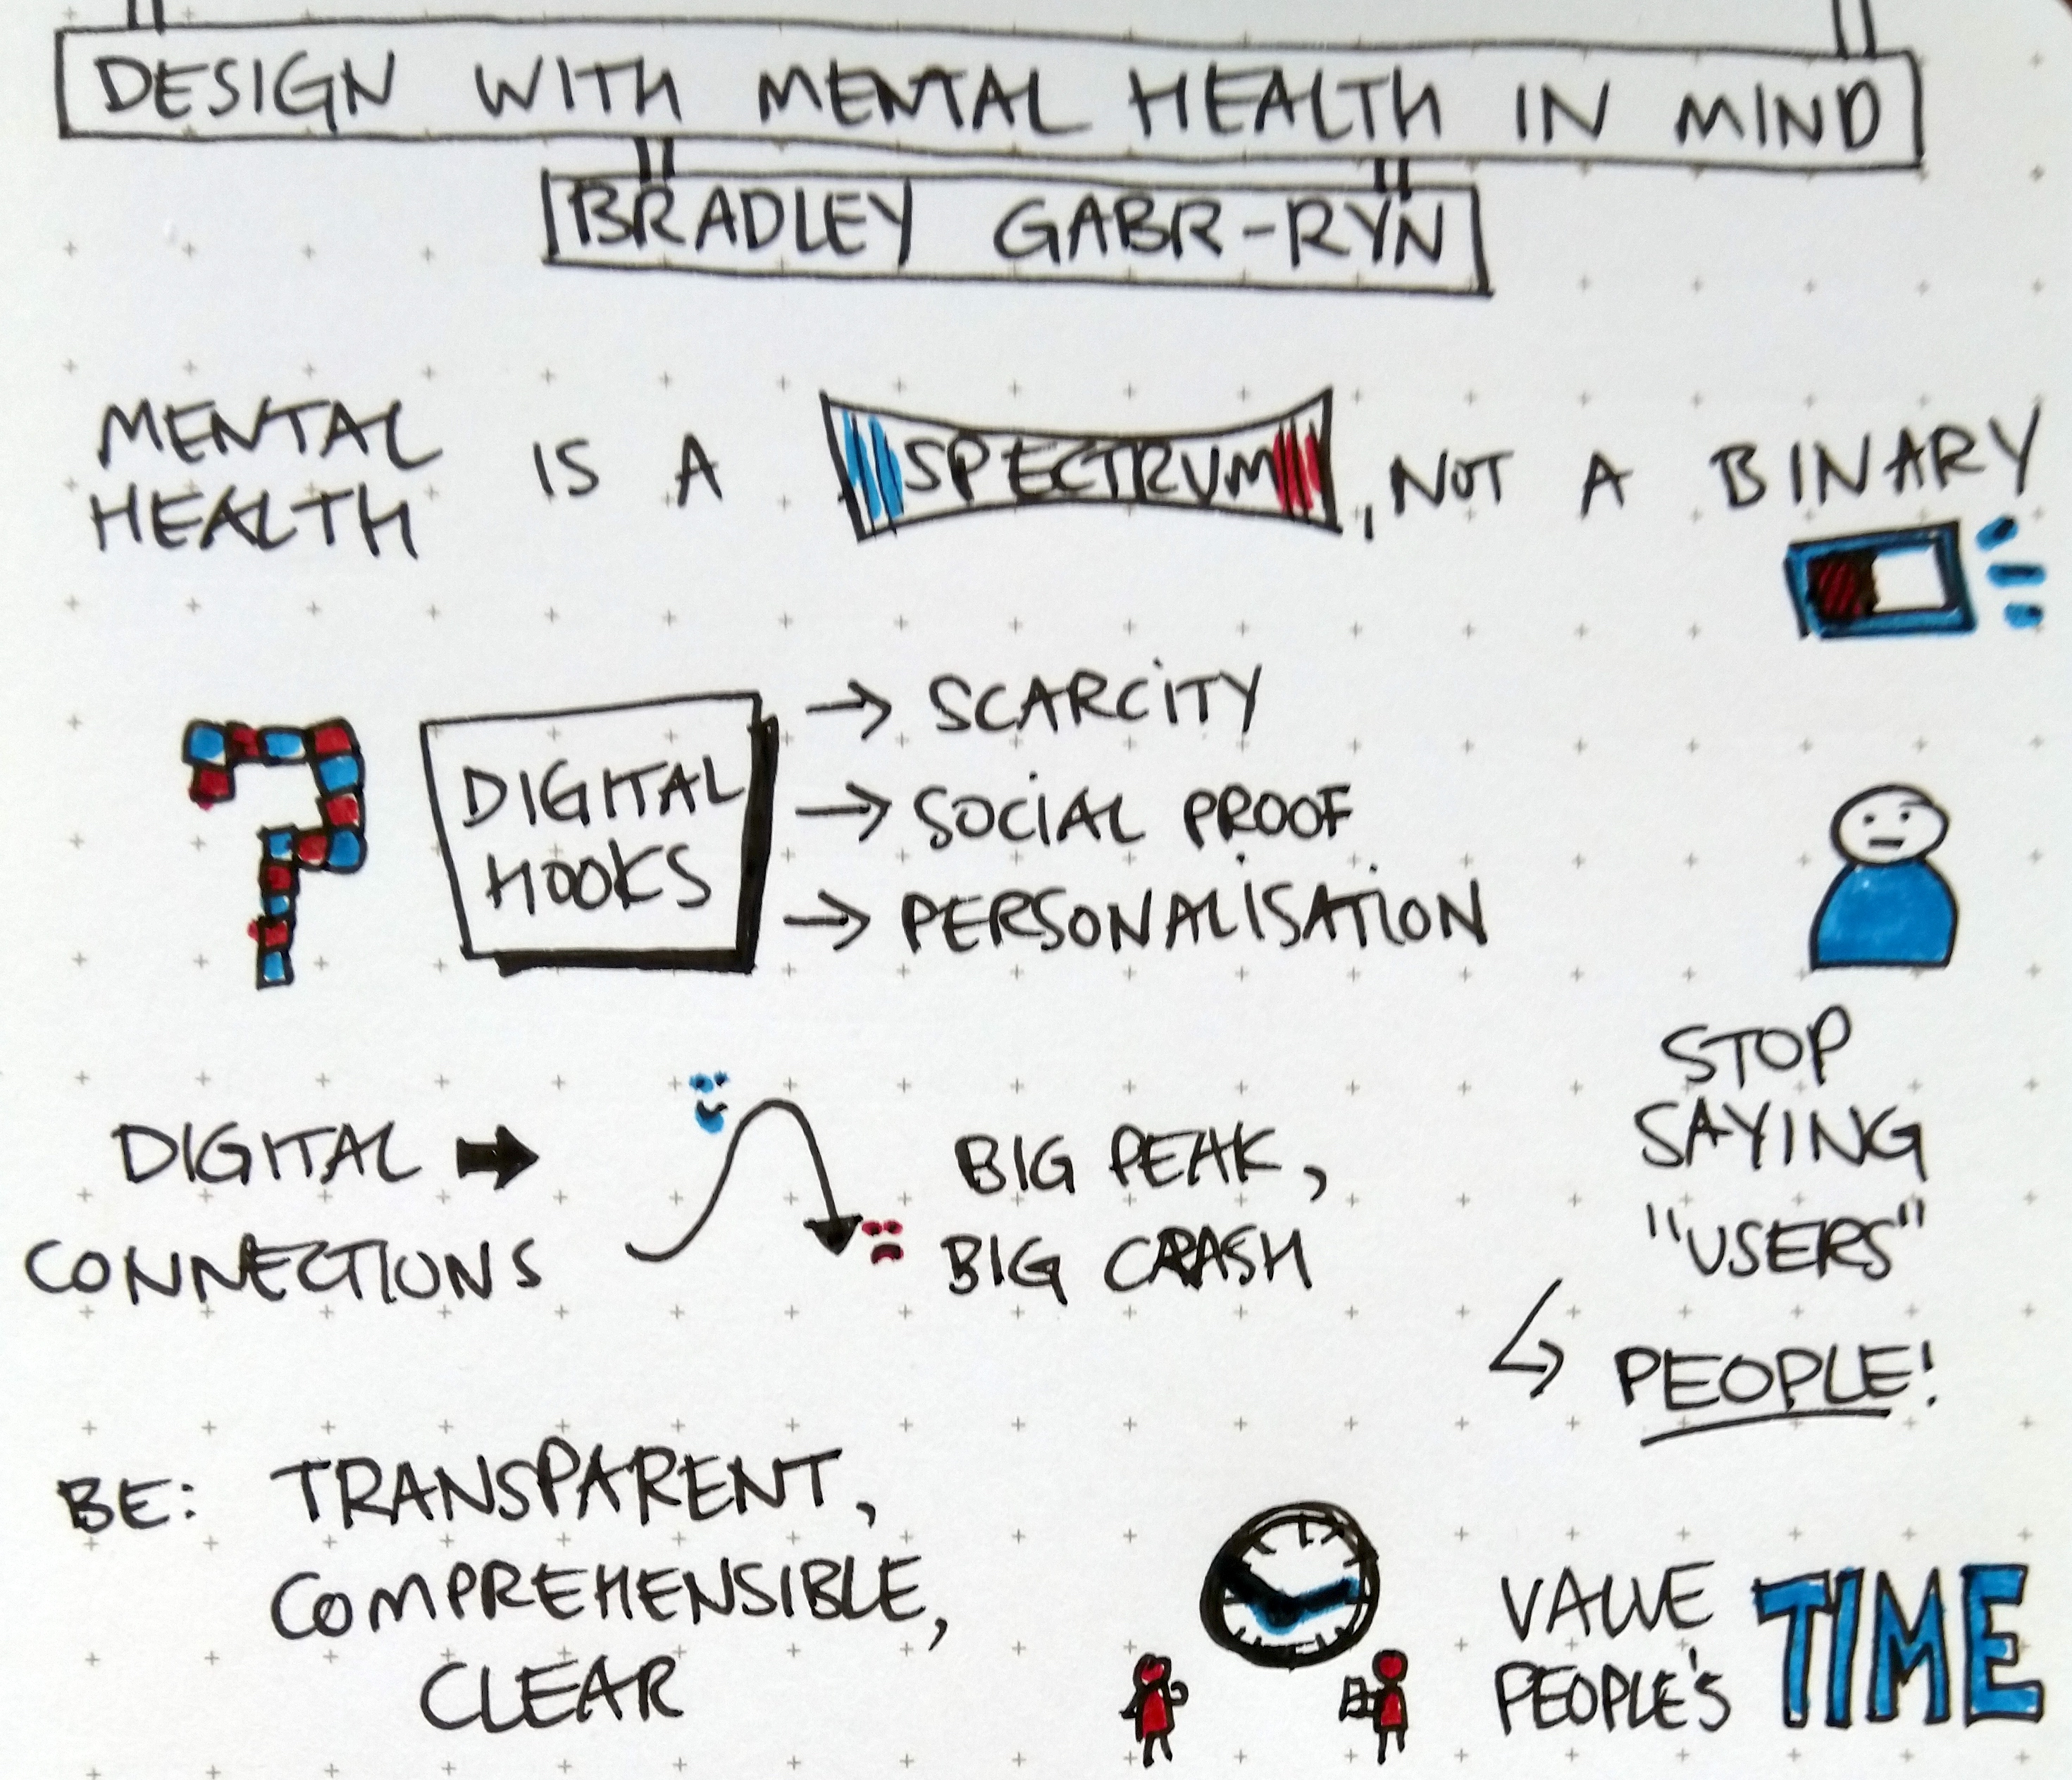 DESIGN WITH MENTAL HEALTH IN MIND
BRADLEY GABR-RYN
MENTAL
HEALTH
IS A SPECTRUM, NOT A BINARY
DIGITAL
HOOKS
→ SCARCITY
→ SOCIAL PROOF
→ PERSONALISATION
DIGITAL
CONNECTIONS
BIG PEAK,
BIG CRASH
STOP
SAYING
"USERS"
PEOPLE!
BE: TRANSPARENT,
COMPREHENSIBLE,
CLEAR
VALUE
PEOPLE'S
TIME